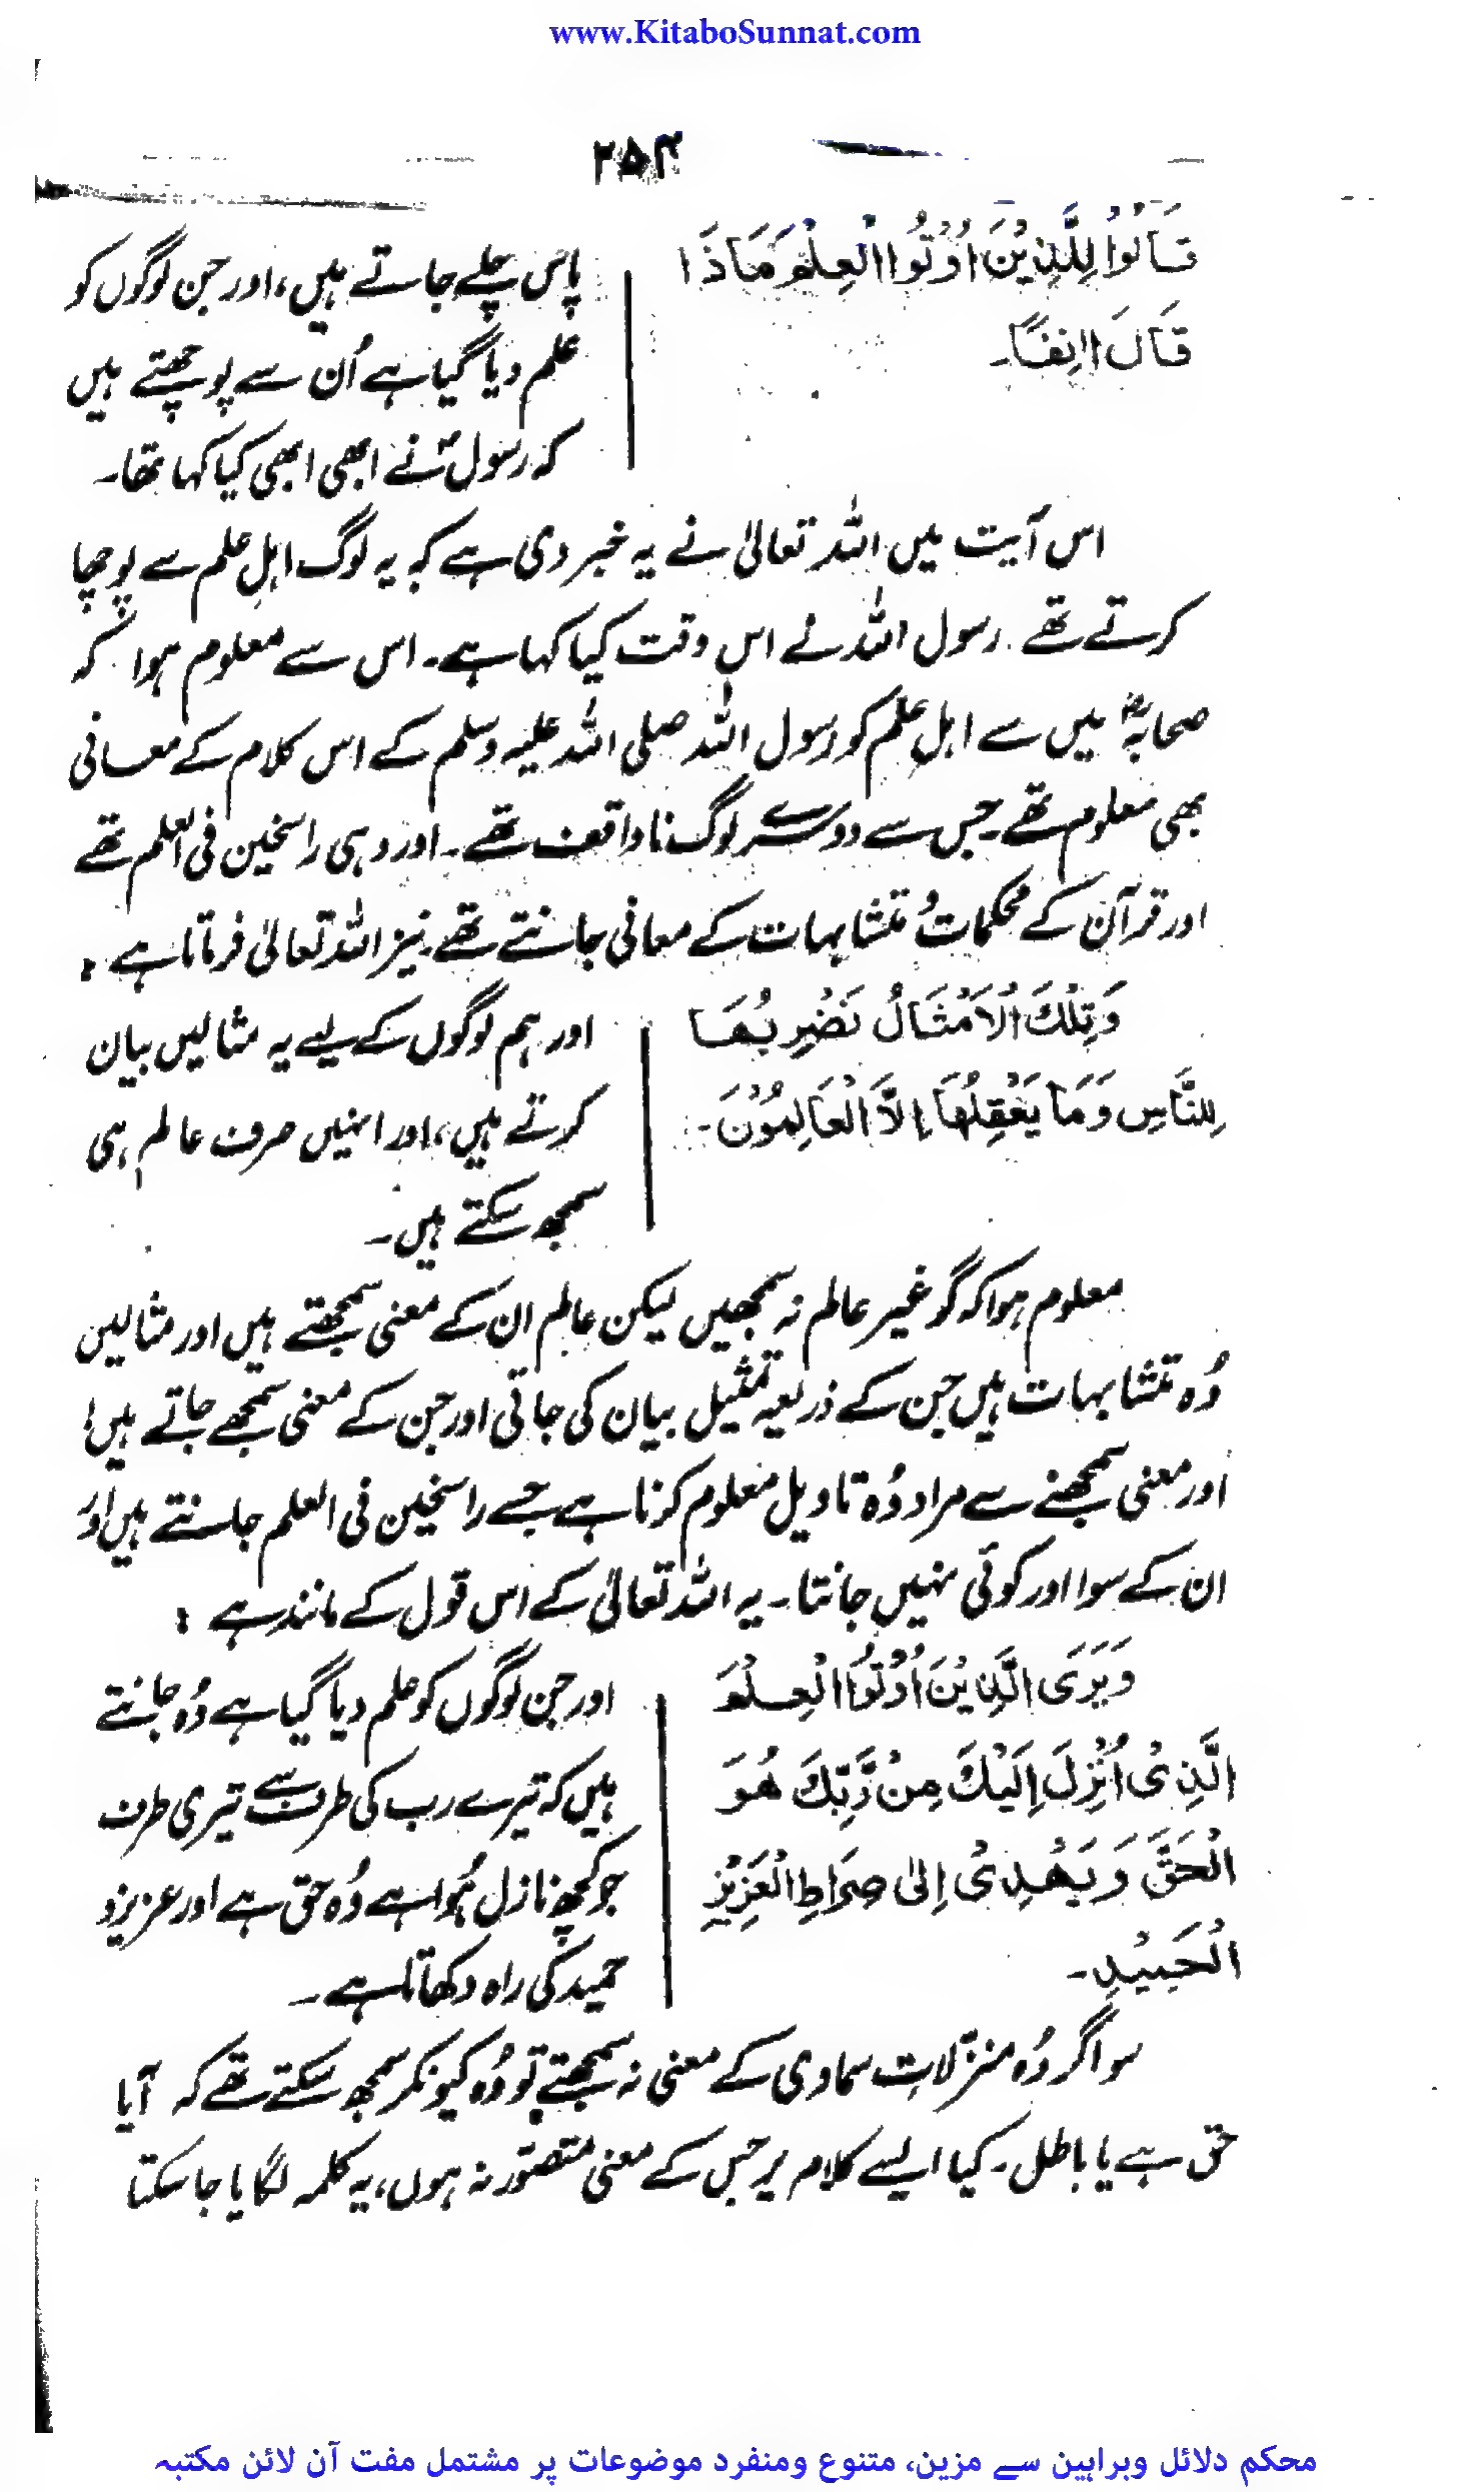 www.KitaboSunnat.com
۲۵۴
قَالُوْا لِلَّذِیْنَ اُوْتُوا الْعِلْمَ مَاذَا
قَالَ اٰنِفًا۔
پاس چلے جاتے ہیں، اور جن لوگوں کو
علم دیا گیا ہے اُن سے پوچھتے ہیں
کہ رسولؐ نے ابھی ابھی کیا کہا تھا۔
اس آیت میں اللہ تعالیٰ نے یہ خبر دی ہے کہ یہ لوگ اہلِ علم سے پوچھا
کرتے تھے۔ رسول اللہ نے اس وقت کیا کہا ہے۔ اس سے معلوم ہوا کہ
صحابہؓ میں سے اہل علم کو رسول اللہ صلی اللہ علیہ وسلم کے اس کلام کے معانی
بھی معلوم تھے جس سے دوسرے لوگ ناواقف تھے۔ اور وہی راسخین فی العلم تھے
اور قرآن کے محکمات و متشابہات کے معانی جانتے تھے۔ نیز اللہ تعالیٰ فرماتا ہے :
وَتِلْكَ الْاَمْثَالُ نَضْرِبُهَا
لِلنَّاسِ وَمَا يَعْقِلُهَا اِلَّا الْعَالِمُوْنَ۔
اور ہم لوگوں کے لیے یہ مثالیں بیان
کرتے ہیں، اور انہیں صرف عالم ہی
سمجھ سکتے ہیں۔
معلوم ہوا کہ گو غیر عالم نہ سمجھیں لیکن عالم ان کے معنی سمجھتے ہیں اور مثالیں
وُہ متشابہات ہیں جن کے ذریعہ تمثیل بیان کی جاتی اور جن کے معنی سمجھے جاتے ہیں!
اور معنی سمجھنے سے مراد وُہ تاویل معلوم کرنا ہے جسے راسخین فی العلم جانتے ہیں اور
ان کے سوا اور کوئی نہیں جانتا۔ یہ اللہ تعالیٰ کے اس قول کے مانند ہے :
وَيَرَى الَّذِيْنَ اُوْتُوا الْعِلْمَ
الَّذِيْ اُنْزِلَ اِلَيْكَ مِنْ رَّبِّكَ هُوَ
الْحَقَّ وَيَهْدِيْ اِلٰى صِرَاطِ الْعَزِيْزِ
الْحَمِيْدِ۔
اور جن لوگوں کو علم دیا گیا ہے وُہ جانتے
ہیں کہ تیرے رب کی طرف سے تیری طرف
جو کچھ نازل ہُوا ہے وُہ حق ہے اور عزیز و
حمید کی راہ دکھاتا ہے۔
سو اگر وُہ منزّلاتِ سماوی کے معنی نہ سمجھتے تو وُہ کیونکر سمجھ سکتے تھے کہ آیا
حق ہے یا باطل۔ کیا ایسے کلام پر جس کے معنی متصوّر نہ ہوں، یہ کلمہ لگایا جا سکتا
محکم دلائل وبراہین سے مزین، متنوع ومنفرد موضوعات پر مشتمل مفت آن لائن مکتبہ